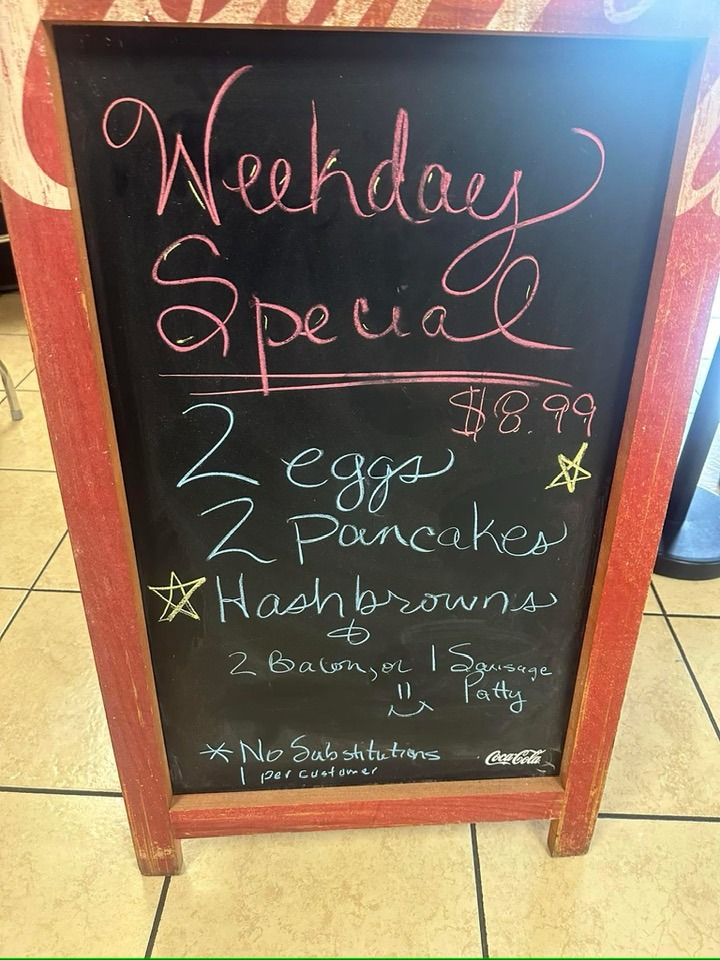 Weekday
Special
$8.99
2 eggs
2 pancakes
Hashbrowns
&
2 Bacon, or 1 Sausage
Patty
* No Substitutions
1 per customer
Coca-Cola